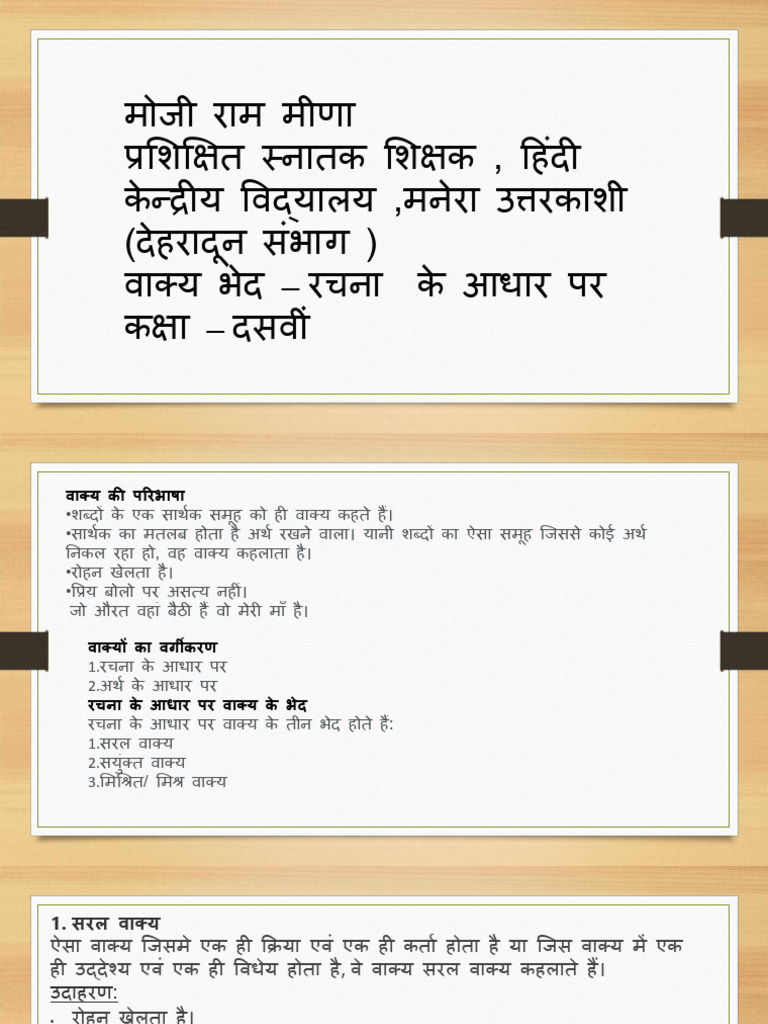 मोजी राम मीणा
प्रशिक्षित स्नातक शिक्षक , हिंदी
केन्द्रीय विद्यालय ,मनेरा उत्तरकाशी
(देहरादून संभाग )
वाक्य भेद – रचना के आधार पर
कक्षा – दसवीं
वाक्य की परिभाषा
•शब्दों के एक सार्थक समूह को ही वाक्य कहते हैं।
•सार्थक का मतलब होता है अर्थ रखने वाला। यानी शब्दों का ऐसा समूह जिससे कोई अर्थ
निकल रहा हो, वह वाक्य कहलाता है।
•रोहन खेलता है।
•प्रिय बोलो पर असत्य नहीं।
जो औरत वहां बैठी हैं वो मेरी माँ है।
वाक्यों का वर्गीकरण
1.रचना के आधार पर
2.अर्थ के आधार पर
रचना के आधार पर वाक्य के भेद
रचना के आधार पर वाक्य के तीन भेद होते हैं:
1.सरल वाक्य
2.सयुंक्त वाक्य
3.मिश्रित/ मिश्र वाक्य
1. सरल वाक्य
ऐसा वाक्य जिसमे एक ही क्रिया एवं एक ही कर्ता होता है या जिस वाक्य में एक
ही उद्देश्य एवं एक ही विधेय होता है, वे वाक्य सरल वाक्य कहलाते हैं।
उदाहरण:
• रोहन खेलता है।